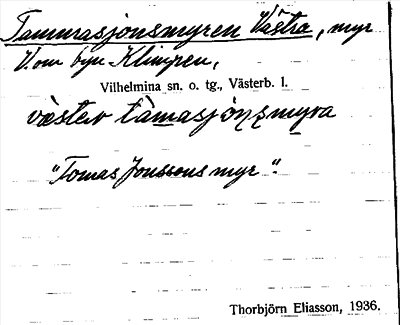 Tammasjonsmyren Västra, myr
V. om byn Klimpen,
Vilhelmina sn. o. tg., Västerb. l.
vèstɛr tàmasjònsmyra
"Tomas Jonssons myr".
Thorbjörn Eliasson, 1936.